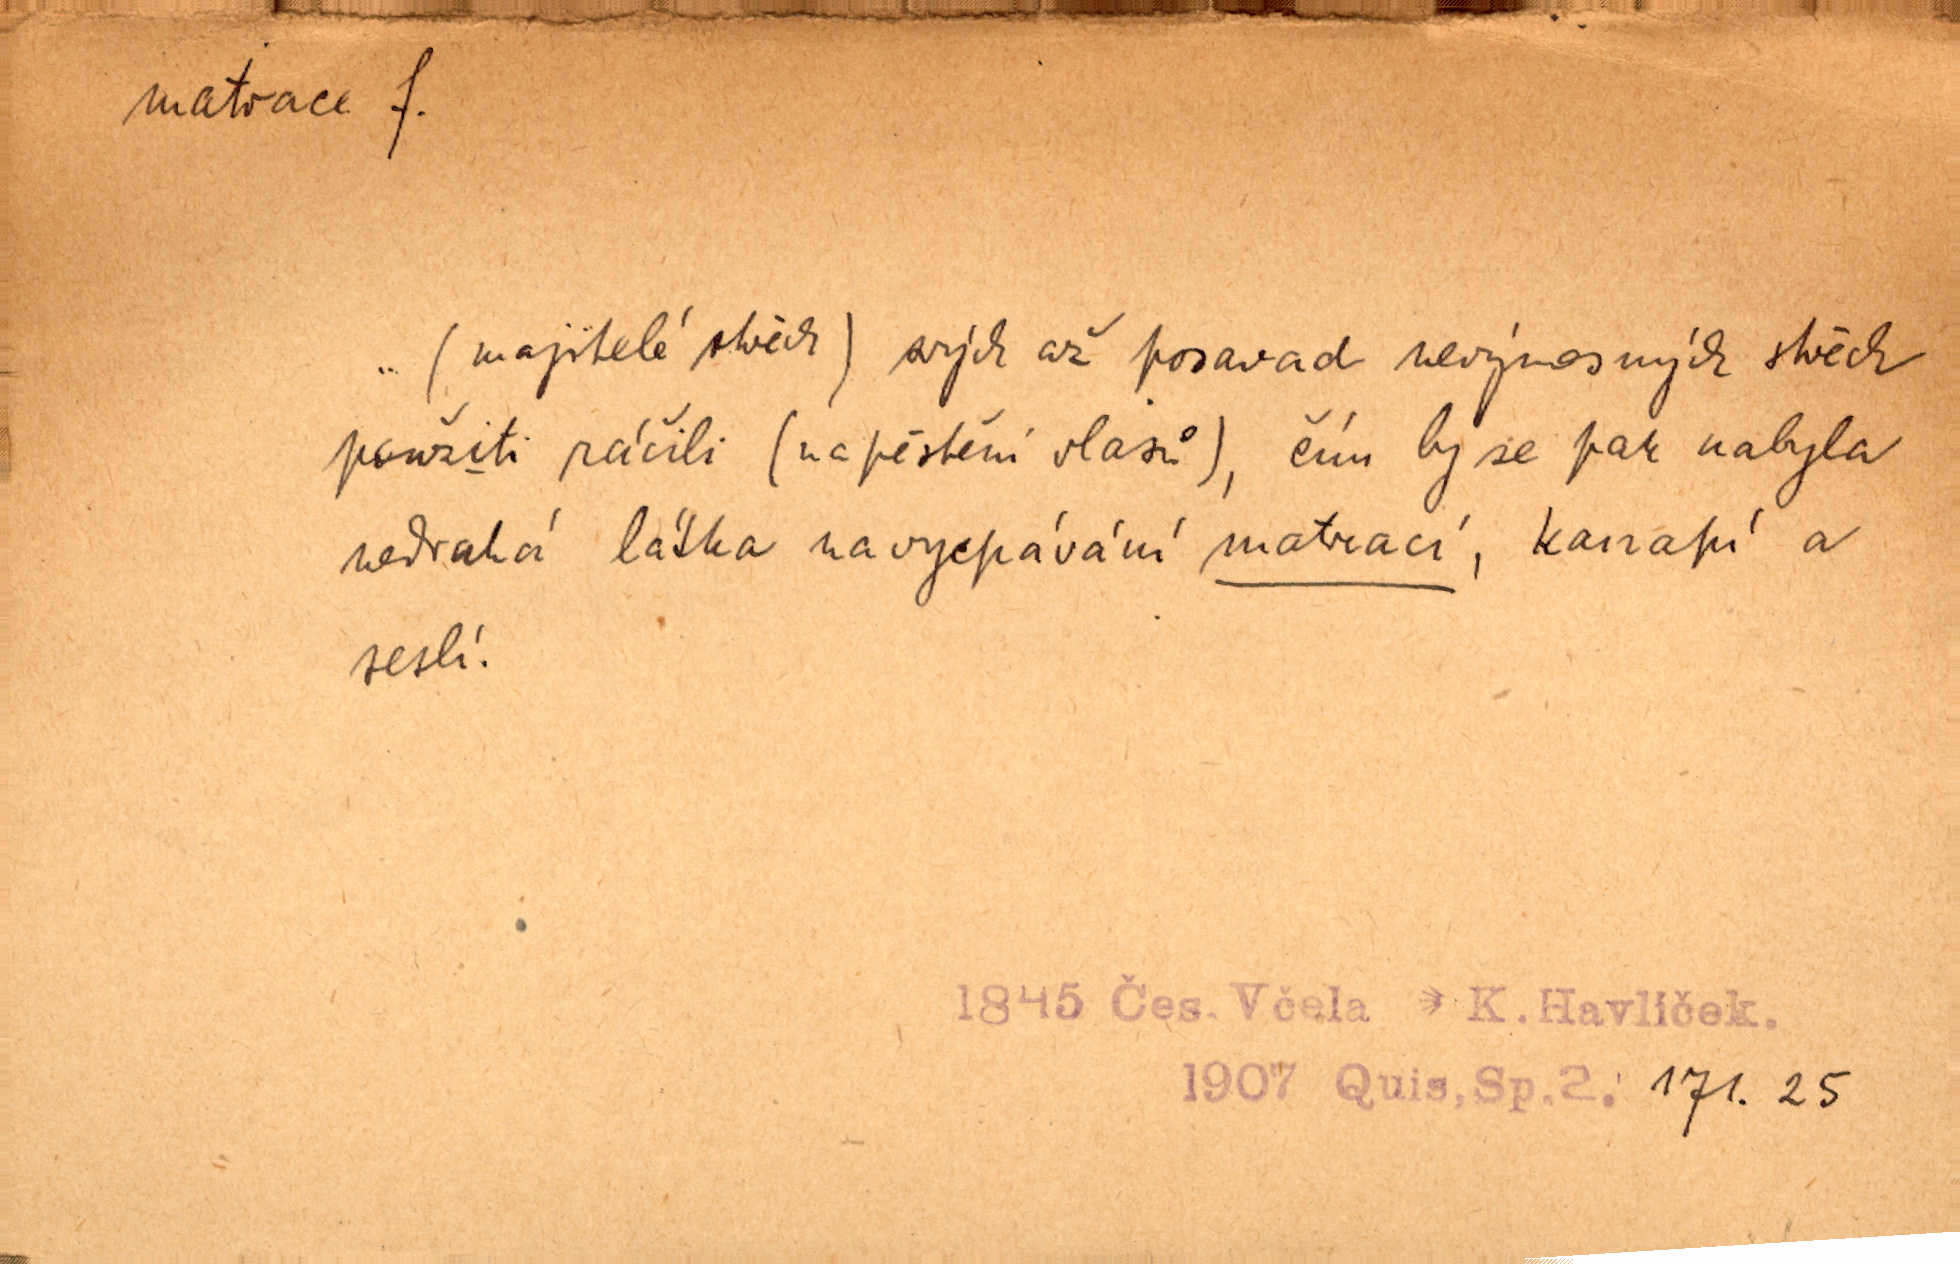 matrace f.
.. (majitelé střech) svých až posavad nevýnosných střech
použiti ráčili (na pěstění vlasů), čím by se pak nabyla
nedrahá látka na vycpávání matrací, kanapí a
seslí.
1845 Čes. Včela K. Havlíček.
1907 Quis, Sp. 2. 171. 25